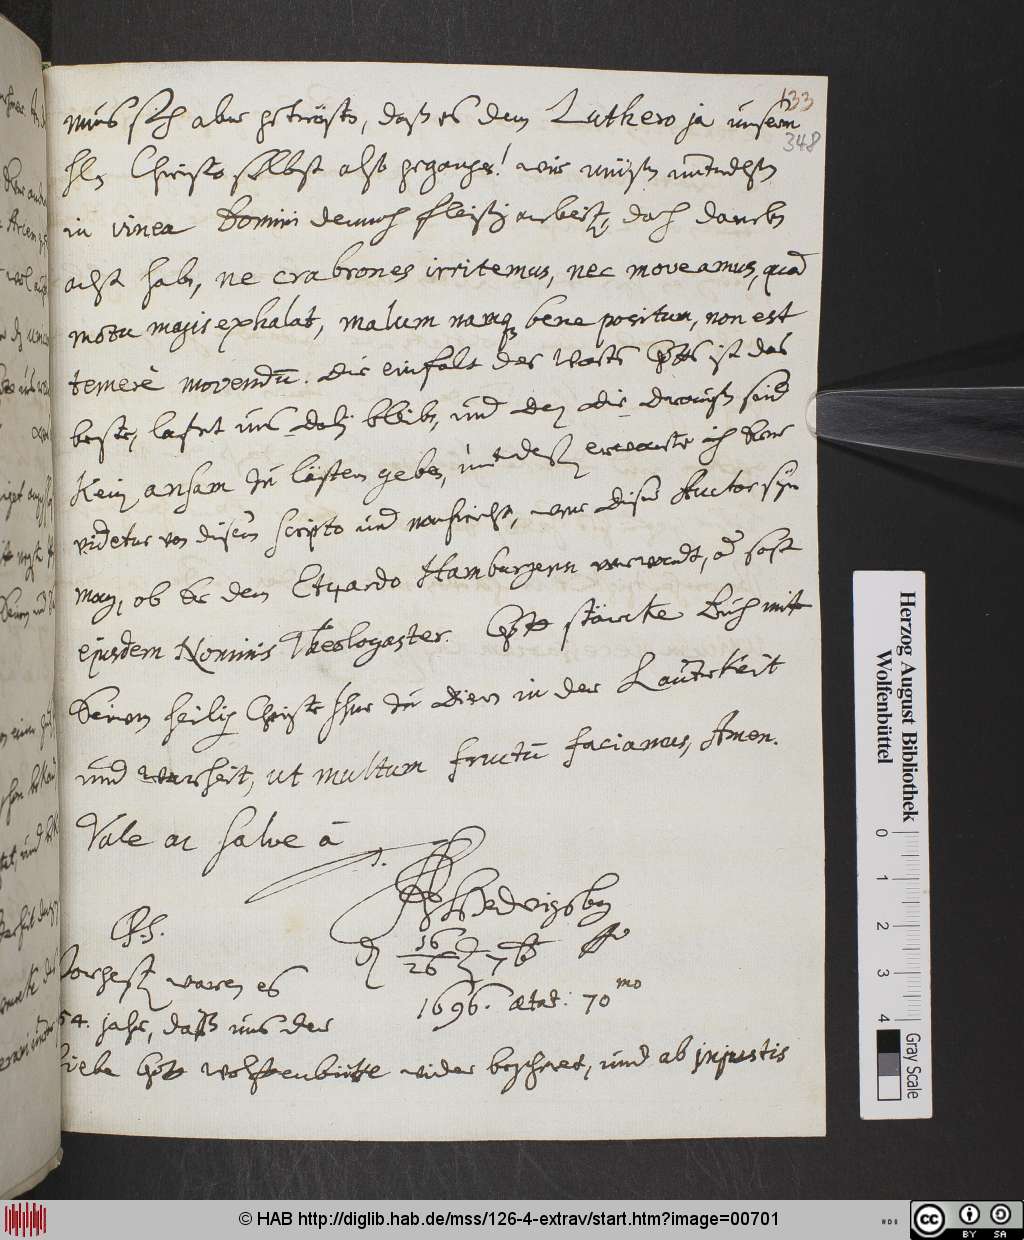 133
348
mus sich aber getrösten, daß es dem Luthero ja unserm
Hln Christo selbst also gegangen! wir müßen
in vinea Domini dennoch fleißig arbeiten, doch daneben
acht haben, ne crabrones irritemus, nec moveamus, quod
motu magis exhalat, malum namq bene positum, non est
temerè movendū. die einfalt des Worts Gottes ist das
beste, laßet uns dabei bleiben, und den die draußen seind
Kein ansam zu lästern geben, erwarte ich Dero
videtur von disem scripto und nachricht, wer diser Auctor seyn
mag, ob er dem Etzardo Hamburgenn verwandt, od sonst
ejusdem Nominis Theologaster. Gott stärcke Euch mit
Seinem heilig Geiste Ihm zu dienen in der Lauterkeit
und warheit, ut multum fructū faciamus, Amen.
Vale ac salve â
T.
Hedvigsbg
d 16/26 7b
1696. ætat: 70mo
P.S.
Vorgest waren es
54. Jahr, daß uns der
liebe Gott wolffenbüttel wider bescheret, und ab injustis
Herzog August Bibliothek
Wolfenbüttel
0 1 2 3 4
Gray Scale
© HAB http://diglib.hab.de/mss/126-4-extrav/start.htm?image=00701
cc BY SA